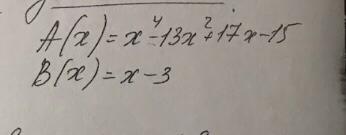 A(x) = x⁴-13x²+17x-15
B(x) = x-3